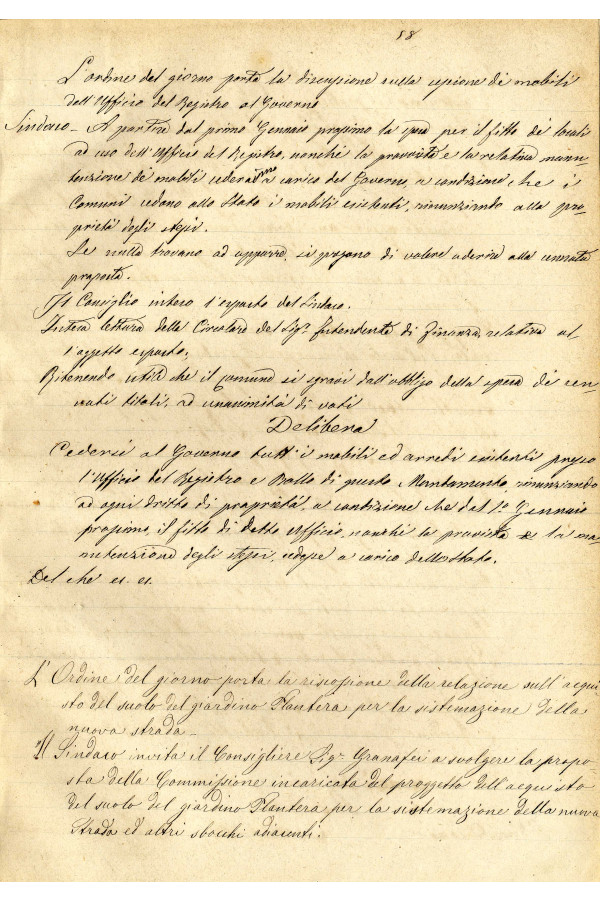 58
L'ordine del giorno porta la discussione sulla cessione dei mobili
dell'Ufficio del Registro al Governo
Sindaco - A partire dal primo Gennaio prossimo la spesa per il fitto dei locali
ad uso dell'Ufficio del Registro, nonchè la provvista e la relativa manu-
tenzione dei mobili a carico del Governo, a condizione che i
Comuni cedano allo Stato i mobili esistenti, rinunziando alla pro-
prietà degli stessi.
Se nulla trovano ad opporre, si pregano di volere aderire alla cennata
proposta.
Il Consiglio inteso l'esposto del Sindaco.
Intesa lettura della Circolare del Sigr Intendente di Finanza, relativa al-
l'oggetto esposto;
Ritenendo utile che il comune si sgravi dall'obbligo della spesa dei cen-
nati titoli, ad unanimità di voti
Delibera
Cedersi al Governo tutt'i mobili ed arredi esistenti presso
l'Ufficio del Registro e Bollo di questo Mandamento, rinunziando
ad ogni dritto di proprietà, a condizione che dal 1° Gennaio
prossimo, il fitto di detto Ufficio, nonchè la provvista e la ma-
nutenzione degli stessi, cedesse a carico dello Stato.
Del che
L'Ordine del giorno porta la della relazione sull'acqui-
sto del suolo del giardino Plantera per la sistemazione della
nuova strada -
Il Sindaco invita il Consigliere Sigr Granafei a svolgere la propo-
sta della Commissione incaricata del progetto dell'acquisto
del suolo del giardino Plantera per la sistemazione della nuova
strada ed altri sbocchi adiacenti.